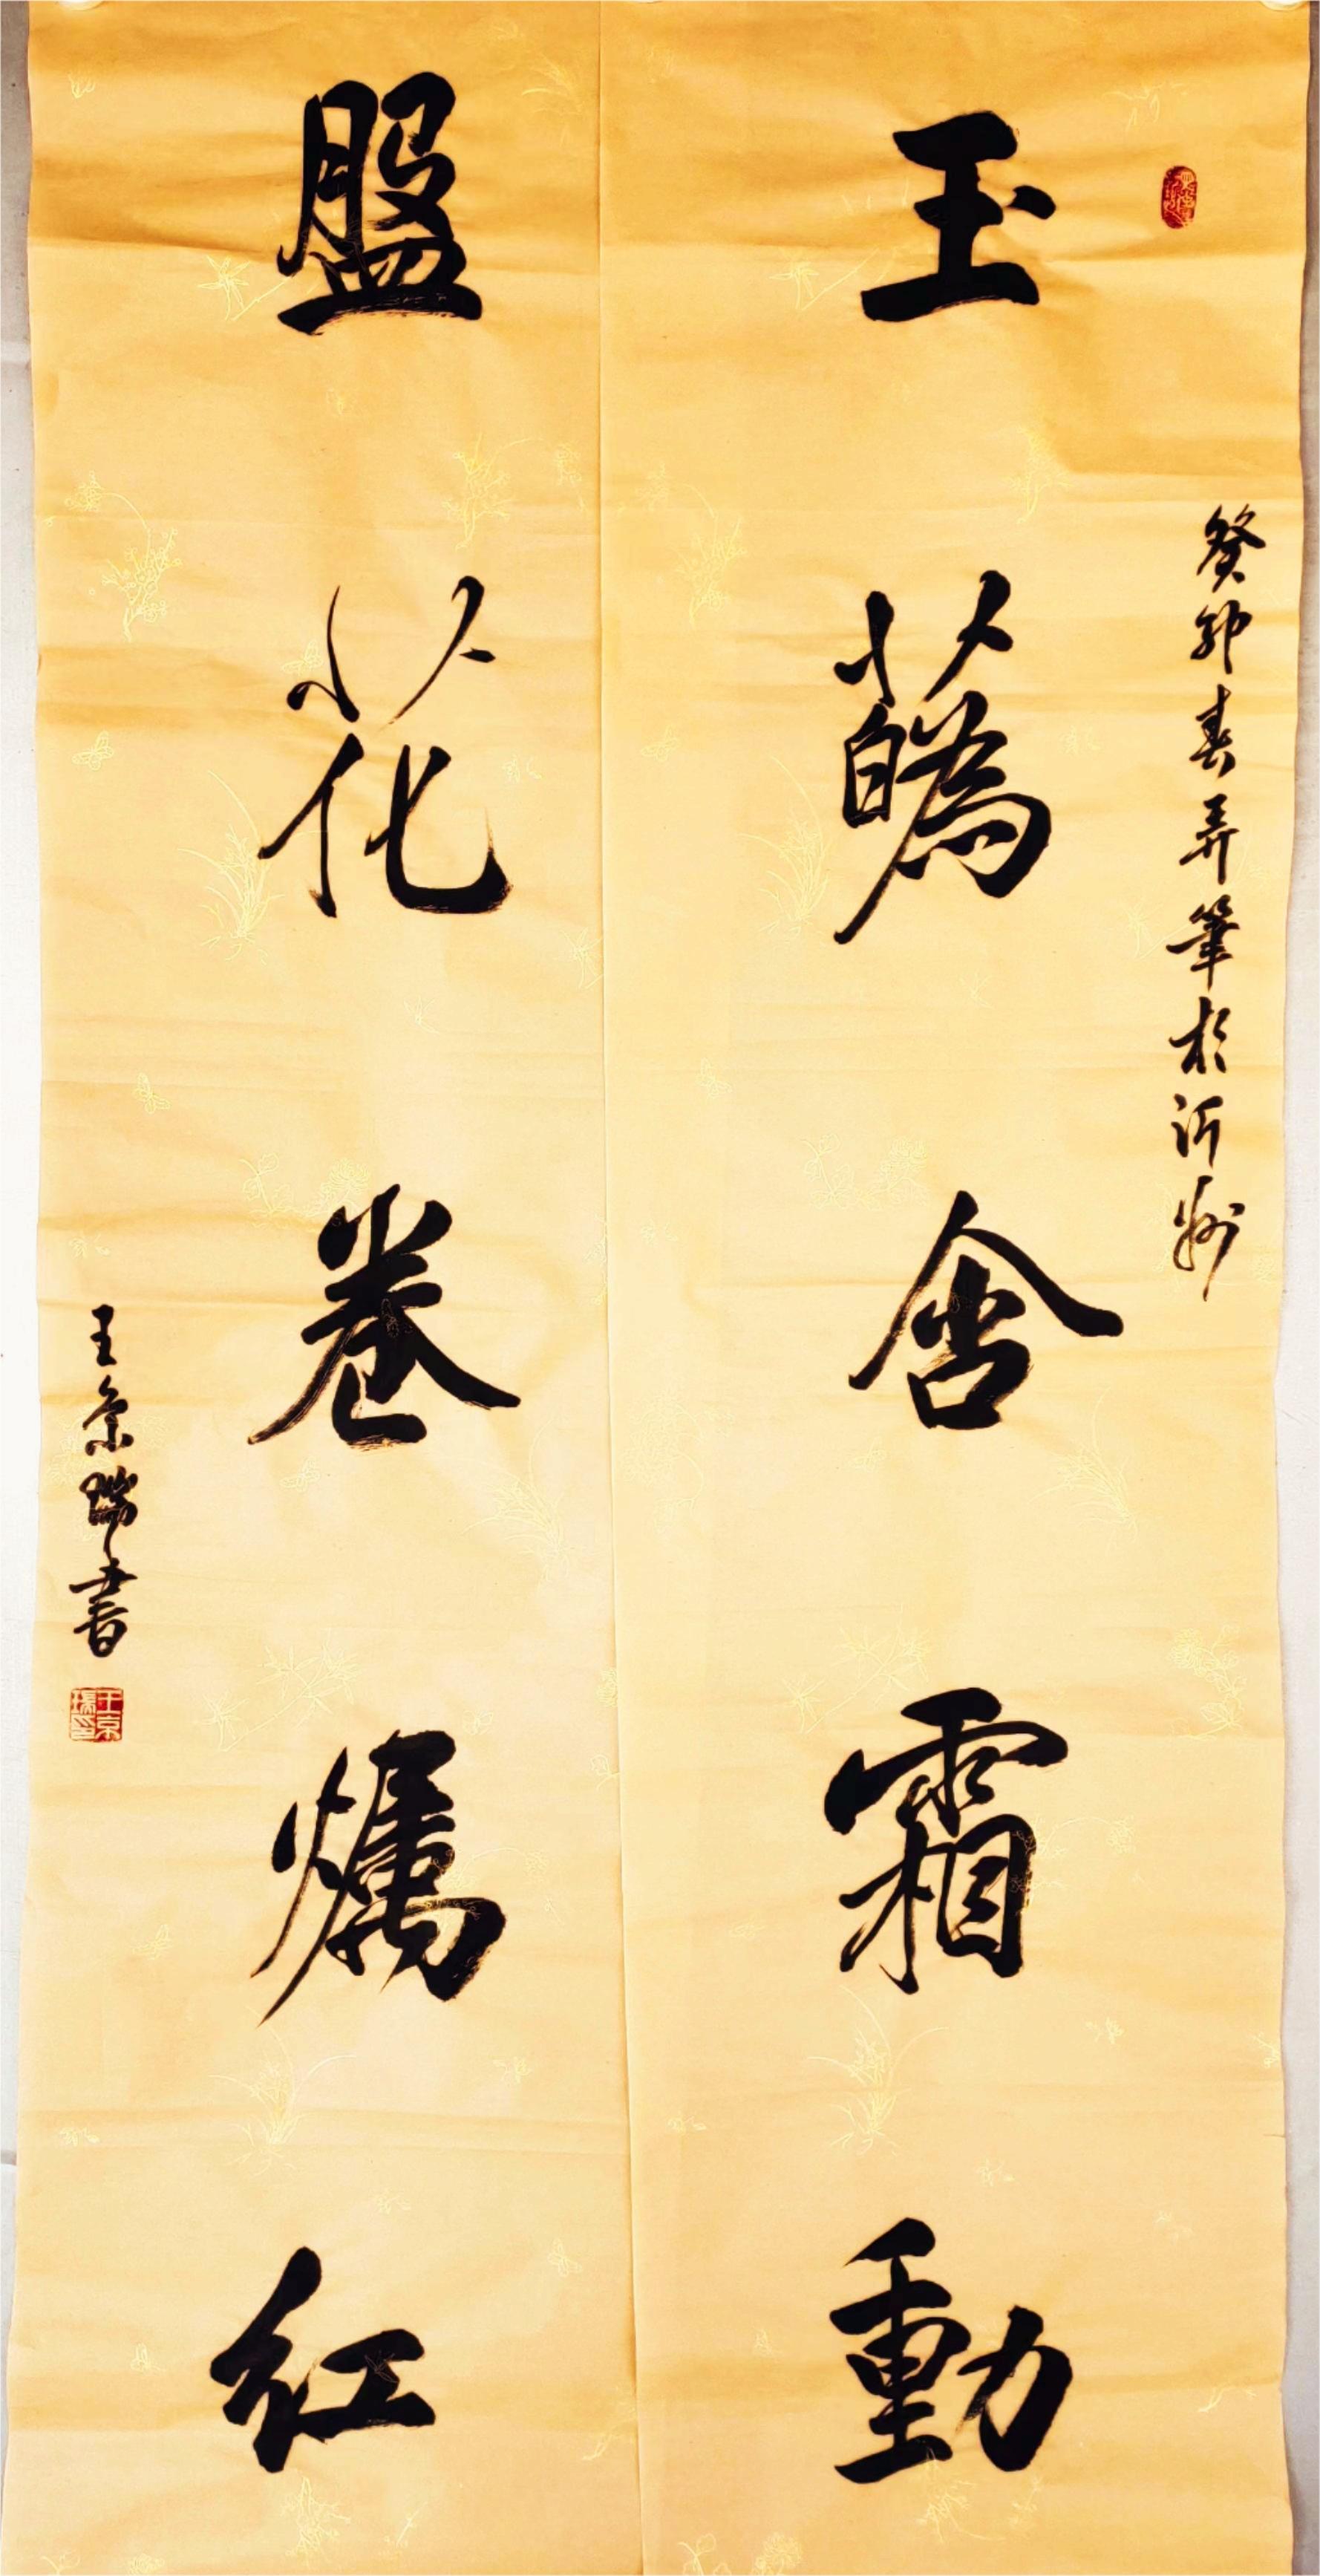 癸卯春弄筆於沂州
玉蘤含霜動
盤花卷爥紅
王京瑞書
王京瑞印